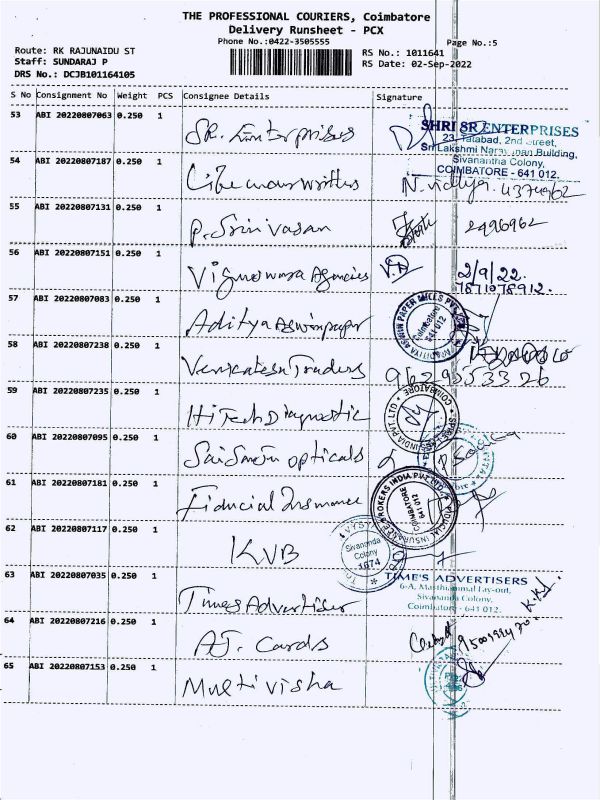 THE PROFESSIONAL COURIERS, Coimbatore
Delivery Runsheet - PCX
Phone No.:0422-3505555
Page No.:5
Route: RK RAJUNAIDU ST
RS No.: 1011641
Staff: SUNDARAJ P
RS Date: 02-Sep-2022
DRS No.: DCJB101164105
S No Consignment No Weight PCS Consignee Details Signature
53 ABI 20220807063 0.250 1 SR. Enterprises
SHRI SR ENTERPRISES
23, Tatabad, 2nd Street,
Sri Lakshmi Narayanan Building,
Sivanantha Colony,
COIMBATORE - 641 012.
54 ABI 20220807187 0.250 1
N. vidhya. 4374962
55 ABI 20220807131 0.250 1 P. Srinivasan 2496962
56 ABI 20220807151 0.250 1 Vigneswara Agencies
2/9/22.
7871078912.
57 ABI 20220807083 0.250 1 Aditya Aswin paper
ADITYA ASWIN PAPER MILLS PVT
Coimbatore
641 012
58 ABI 20220807238 0.250 1 Venkatesh Traders
9629553326
59 ABI 20220807235 0.250 1 HiTech Diagnostic
INDIA PVT. LTD * COIMBATORE *
60 ABI 20220807095 0.250 1 opticals
61 ABI 20220807181 0.250 1 Fiducial Insurance
FIDUCIA INSURANCE BROKERS INDIA PVT LTD
COIMBATORE
641 012
62 ABI 20220807117 0.250 1 KVB
VYSYA
Sivananda
Colony
1674
63 ABI 20220807035 0.250 1 Times Advertiser
TIME'S ADVERTISERS
6-A, Masthammal Lay-out,
Sivananda Colony,
Coimbatore - 641 012.
64 ABI 20220807216 0.250 1 AJ. Cards
65 ABI 20220807153 0.250 1 Multi visha